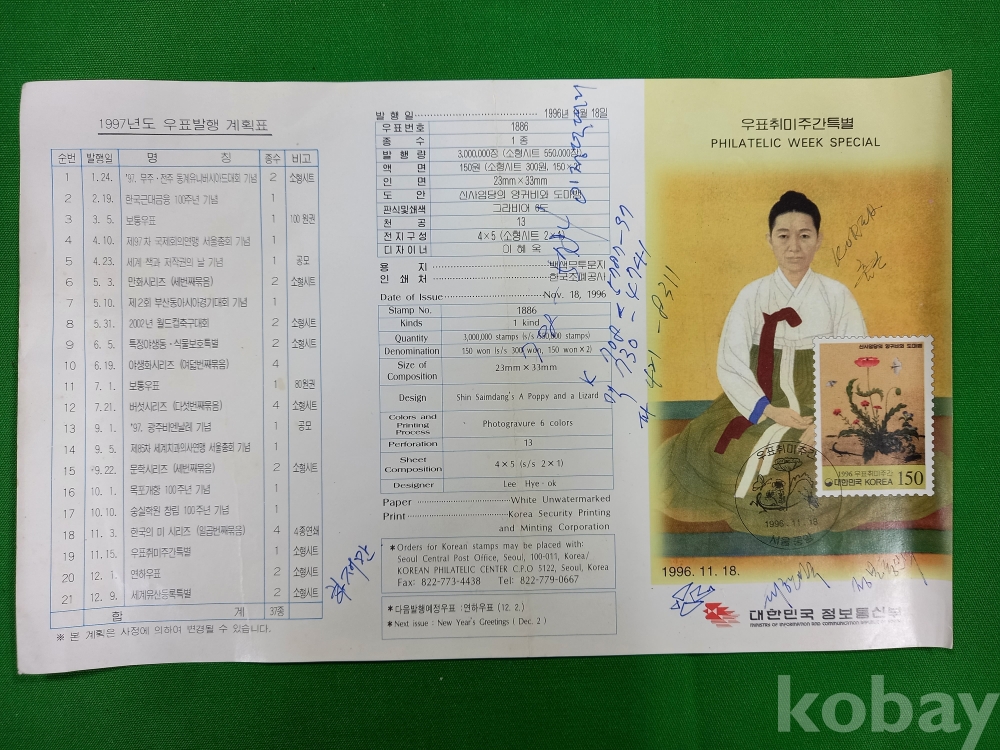 1997년도 우표발행 계획표
순번 발행일 명 칭 종수 비고
1 1.24. '97. 무주·전주 동계유니버시아드대회 기념 2 소형시트
2 2.19. 한국근대금융 100주년 기념 1
3 3. 5. 보통우표 1 100원권
4 4.10. 제97차 국제의회연맹 서울총회 기념 1
5 4.23. 세계 책과 저작권의 날 기념 1 공모
6 5. 3. 만화시리즈 (세번째묶음) 2 소형시트
7 5.10. 제2회 부산동아시아경기대회 기념 1
8 5.31. 2002년 월드컵축구대회 2 소형시트
9 6. 5. 특정야생동·식물보호특별 2 소형시트
10 6.19. 야생화시리즈 (여덟번째묶음) 4
11 7. 1. 보통우표 1 80원권
12 7.21. 버섯시리즈 (다섯번째묶음) 4 소형시트
13 9. 1. '97. 광주비엔날레 기념 1 공모
14 9. 5. 제85차 세계치과의사연맹 서울총회 기념 1
15 9.22. 문학시리즈 (세번째묶음) 2 소형시트
16 10. 1. 목포개항 100주년 기념 1
17 10.10. 숭실학원 창립 100주년 기념 1
18 11. 3. 한국의 미 시리즈 (일곱번째묶음) 4 4종연쇄
19 11.15. 우표취미주간특별 1 소형시트
20 12. 1. 연하우표 2 소형시트
21 12. 9. 세계유산등록특별 2 소형시트
합 계 37종
※ 본 계획은 사정에 의하여 변경될 수 있습니다.
발행일 1996년 월 18일
우표번호 1886
종 수 1 종
발행량 3,000,000장 (소형시트 550,000장)
액 면 150원 (소형시트 300원, 150×2)
인 면 23mm×33mm
도 안 신사임당의 양귀비와 도마뱀
판식및쇄색 그라비어 6도
천 공 13
전지구성 4×5 (소형시트 2×1)
디자이너 이 혜 옥
용 지 백색무투문지
인쇄처 한국조폐공사
Date of Issue Nov. 18, 1996
Stamp No. 1886
Kinds 1 kind
Quantity 3,000,000 stamps (s/s 550,000 stamps)
Denomination 150 won (s/s 300 won, 150 won×2)
Size of Composition 23mm×33mm
Design Shin Saimdang's A Poppy and a Lizard
Colors and Printing Process Photogravure 6 colors
Perforation 13
Sheet Composition 4×5 (s/s 2×1)
Designer Lee Hye-ok
Paper White Unwatermarked
Print Korea Security Printing
and Minting Corporation
＊Orders for Korean stamps may be placed with:
Seoul Central Post Office, Seoul, 100-011, Korea/
KOREAN PHILATELIC CENTER C.P.O 5122, Seoul, Korea
Fax: 822-773-4438 Tel: 822-779-0667
＊다음발행예정우표 : 연하우표 (12. 2.)
＊Next issue : New Year's Greetings ( Dec. 2 )
우표취미주간특별
PHILATELIC WEEK SPECIAL
KOREA
신사임당의 양귀비와 도마뱀
1996.우표취미주간
대한민국 KOREA 150
우표취미주간
1996.11.18
1996. 11. 18.
대한민국 정보통신부
MINISTRY OF INFORMATION AND COMMUNICATION REPUBLIC OF KOREA
kobay